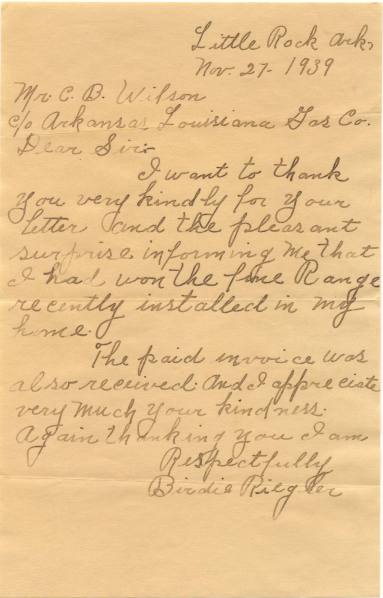 Little Rock Ark.
Nov. 27-1939
Mr. C. B. Wilson
c/o Arkansas Louisiana Gas Co.
Dear Sir:
I want to thank
you very kindly for your
letter and the pleasant
surprise informing me that
I had won the fine Range
recently installed in my
home.
The paid invoice was
also received. And I appreciate
very much your kindness.
Again thanking you I am
Respectfully
Birdie Riegler